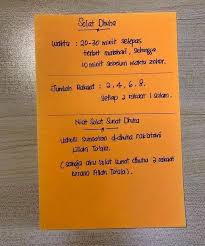 Solat Dhuha
Waktu : 20-30 minit selepas
terbit matahari, sehingga
10 minit sebelum waktu zohor.
Jumlah Rakaat : 2, 4, 6, 8.
Setiap 2 rakaat 1 salam.
Niat Solat Sunat Dhuha
Usholli sunnatan d-dhuha rak'ataini
lillahi Ta'ala.
( Sahaja aku solat sunat dhuha 2 rakaat
kerana Allah Ta'ala. )